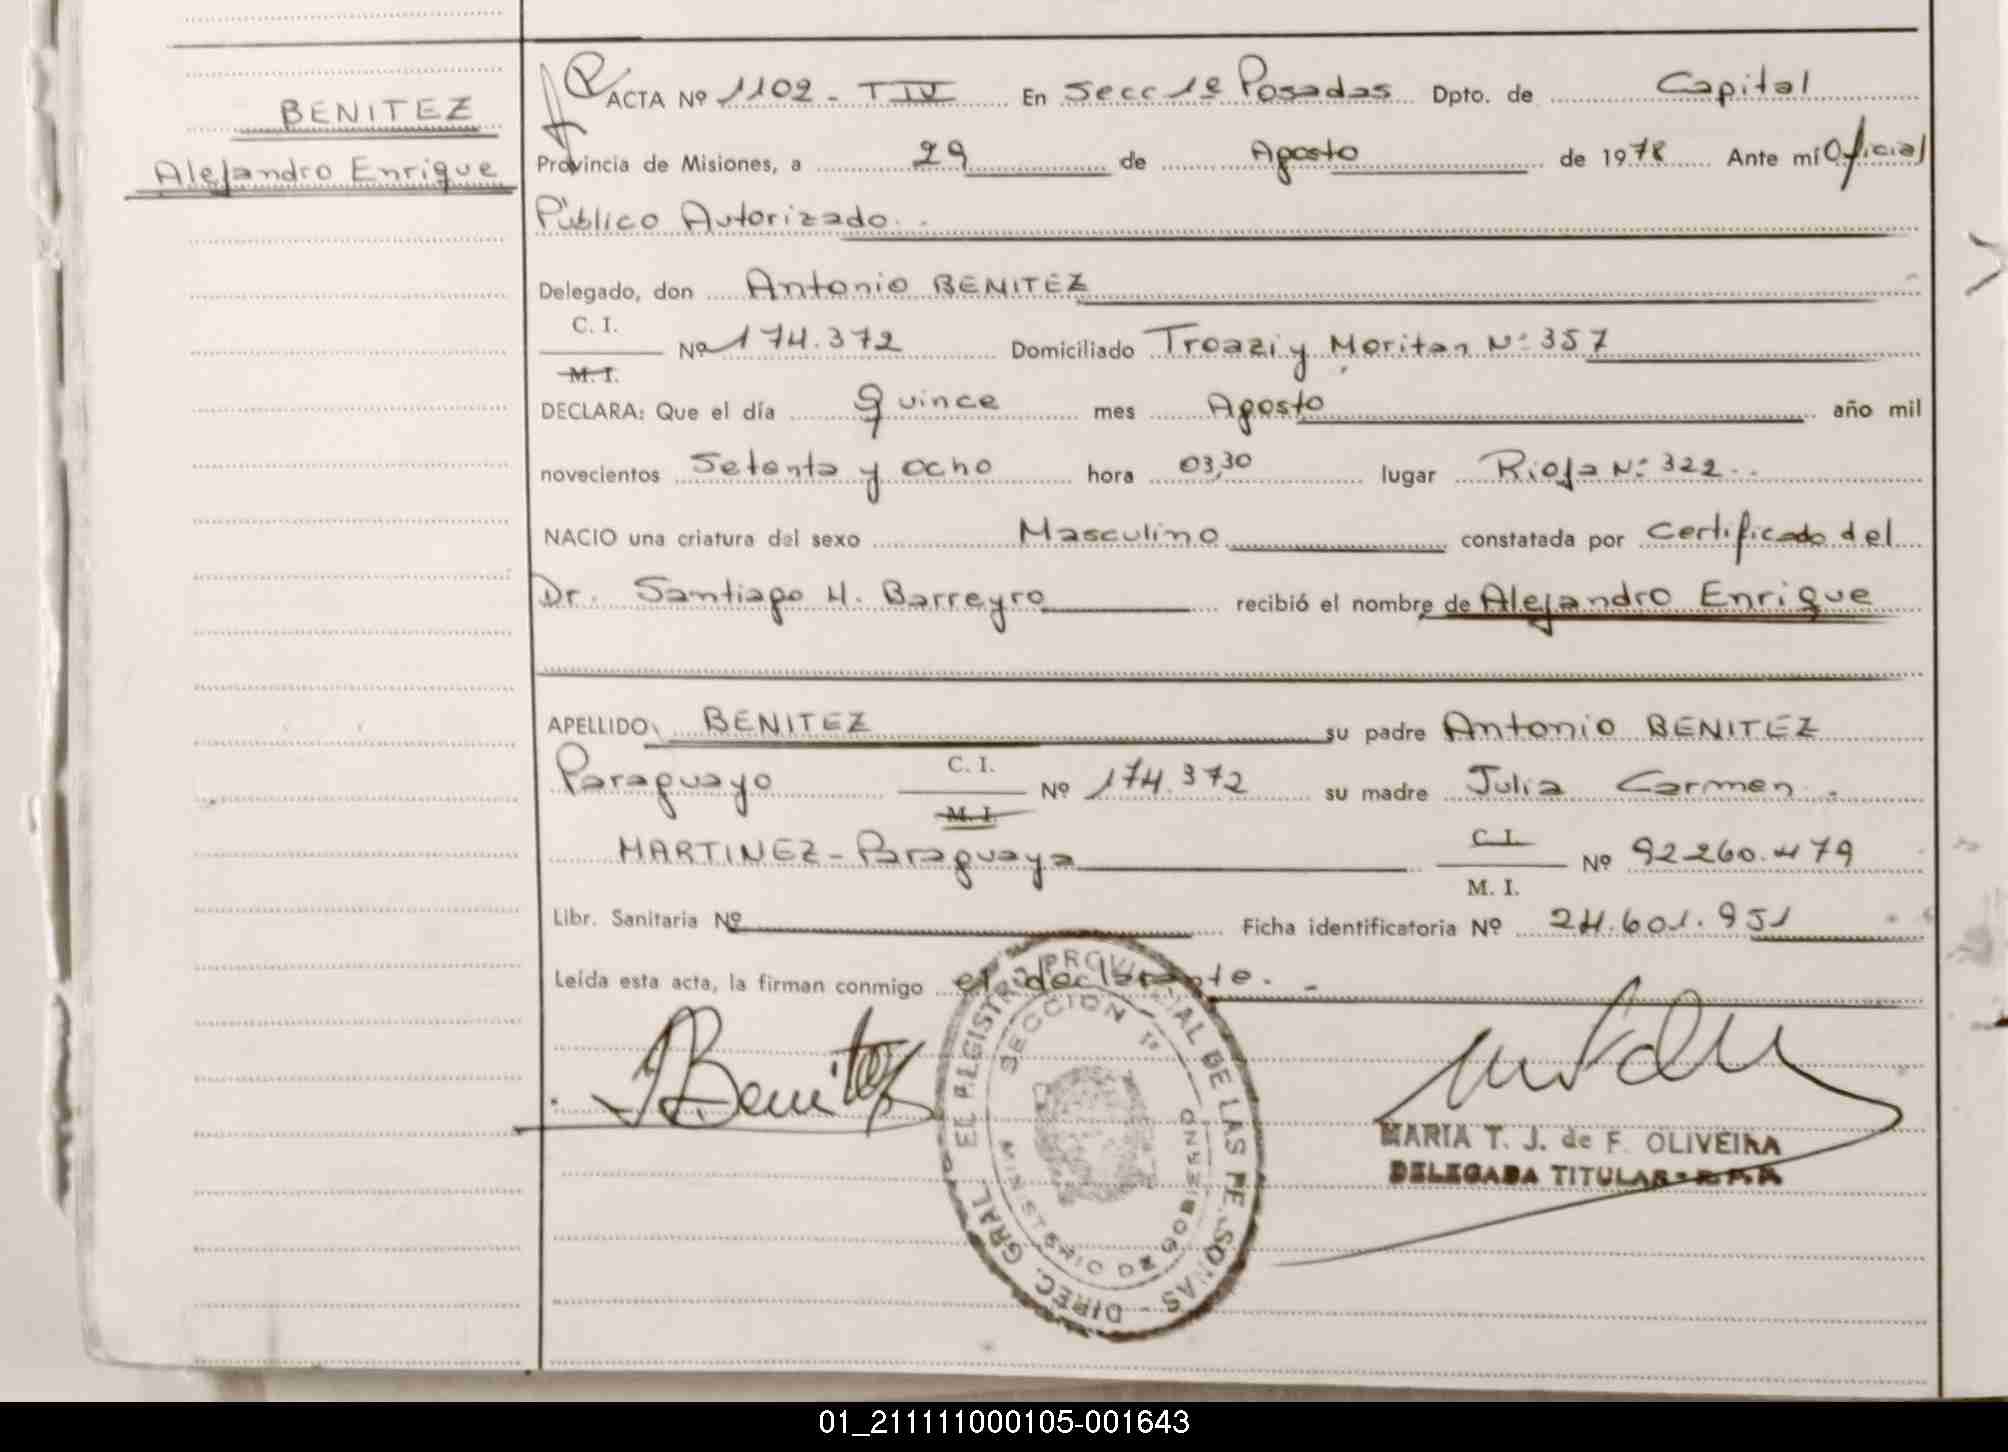 BENITEZ
Alejandro Enrique
ACTA Nº 1102 - T IV En Secc 1º Posadas Dpto. de Capital
Provincia de Misiones, a 29 de Agosto de 1978 Ante mí Oficial
Público Autorizado.
Delegado, don Antonio BENITEZ
C. I.
Nº 174.372 Domiciliado Troazi y Moritan Nº 357
M. I.
DECLARA: Que el día Quince mes Agosto año mil
novecientos Setenta y ocho hora 03,30 lugar Rioja Nº 322.
NACIO una criatura del sexo Masculino constatada por Certificado del
Dr. Santiago H. Barreyro recibió el nombre de Alejandro Enrique
APELLIDO BENITEZ su padre Antonio BENITEZ
Paraguayo C. I. Nº 174.372 su madre Julia Carmen
M. I.
MARTINEZ - Paraguaya C. I. Nº 92260.479
M. I.
Libr. Sanitaria Nº Ficha identificatoria Nº 24.601.951
Leída esta acta, la firman conmigo el declarante. -
ABenitez
SECCION 1º
MINISTERIO DE GOBIERNO
MARIA T. J. de F. OLIVEIRA
DELEGADA TITULAR - R.P.P.
01_211111000105-001643